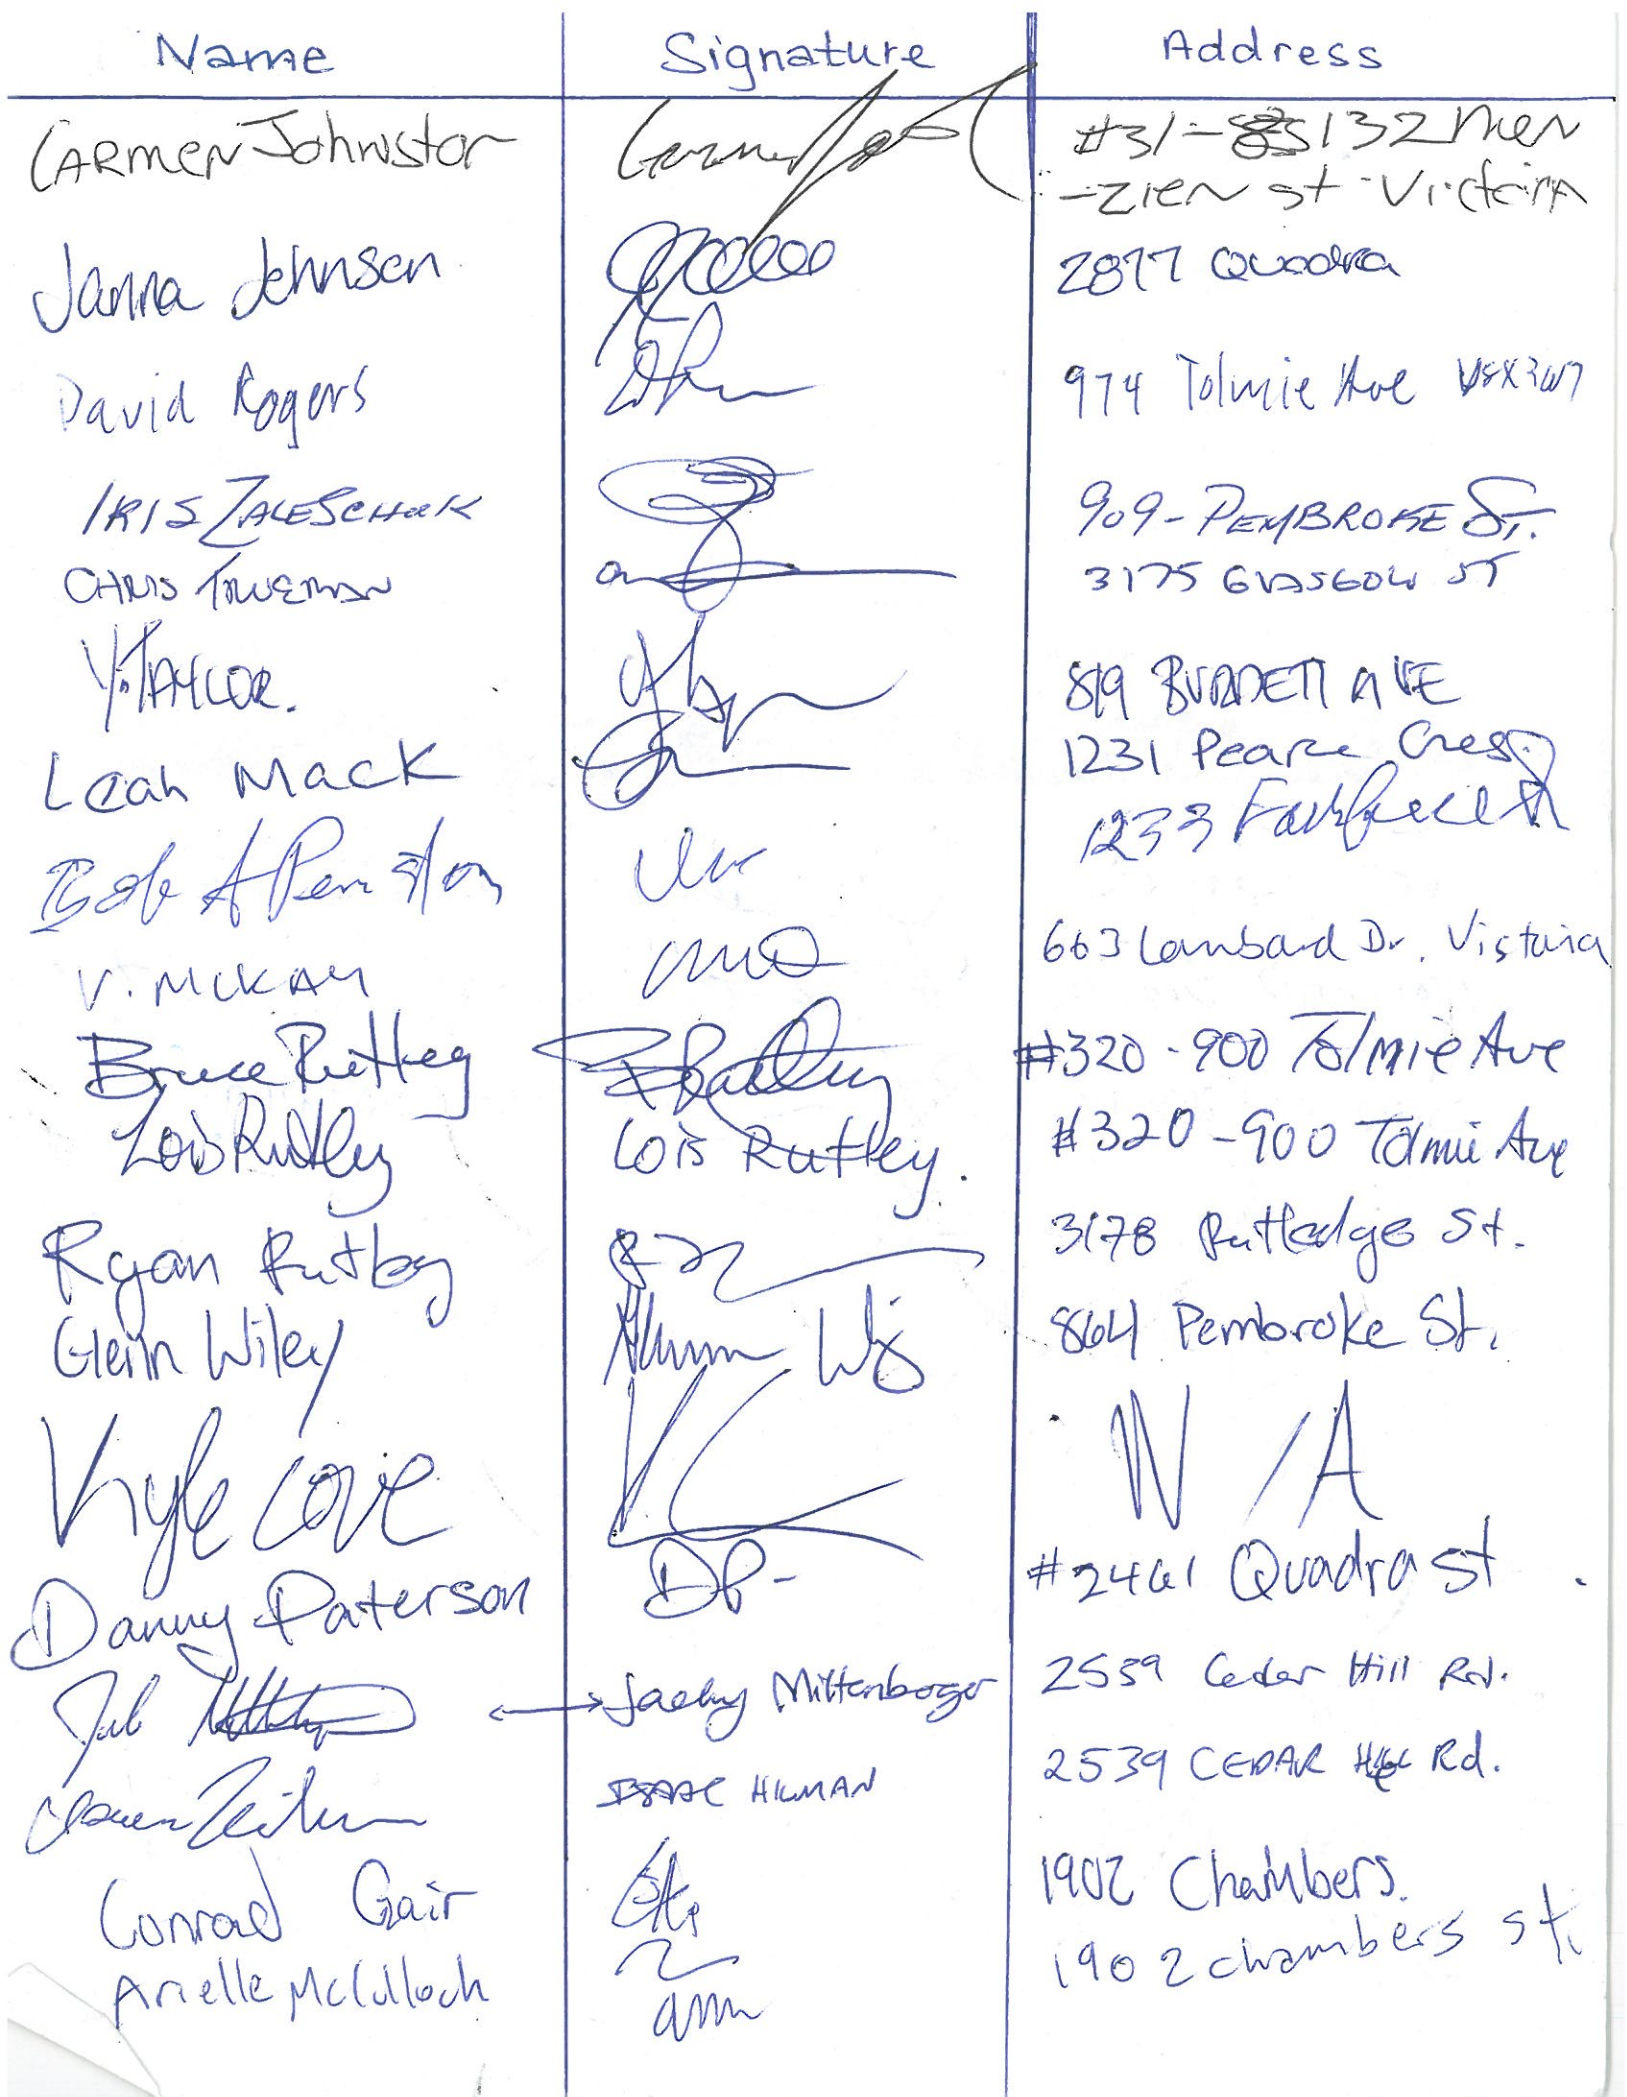 Name Signature Address
CARMEN Johnston #31- 132 Men
-zien st Victoria
Janna Johnson 2877 Quadra
David Rogers 974 Tolmie Ave V8X3W7
IRIS ZALESCHUK 909- PEMBROKE ST.
CHRIS TRUEMAN 3175 GLASGOW ST
Y. TAYLOR. 819 BURDETT AVE
Leah Mack 1231 Pearce Cres.
Bob A Peniston 1233 Fairfield
V. MCKAY 663 Lombard Dr. Victoria
Bruce Rutley #320-900 Tolmie Ave
Lois Rutley Lois Rutley. #320-900 Tolmie Ave
Ryan Rutley 3178 Rutledge St.
Glenn Wiley 864 Pembroke St.
Kyle Cove KC N/A
Danny Paterson DP- #2461 Quadra St
Jacky Mittenberger 2539 Cedar Hill Rd.
ISAAC HILMAN 2539 CEDAR Hill Rd.
Conrad Gair 1902 Chambers.
Arielle McCulloch 1902 chambers st.